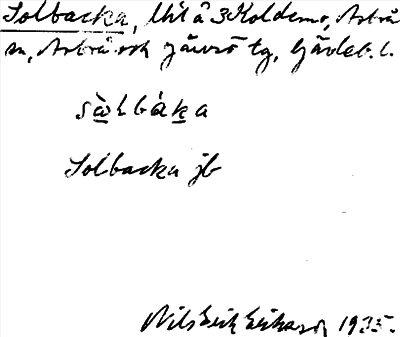 Solbacka, lht å 3 Koldemo, Arbrå
sn, Arbrå och Järvsö tg, Gävleb. l.
sὼlbáka
Solbacka jb
Nils Erik Eriksson 1935.